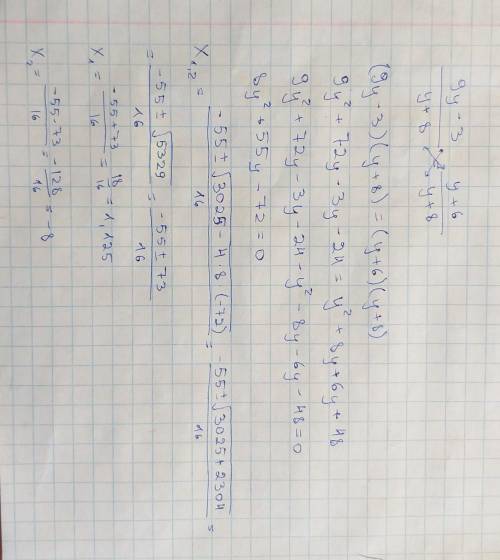 9y-3/y+8 = y+6/y+8
(9y-3)(y+8)=(y+6)(y+8)
9y²+72y-3y-24=y²+8y+6y+48
9y²+72y-3y-24-y²-8y-6y-48=0
8y²+55y-72=0
X₁,₂ = -55±√3025-4·8·(-72)/16 = -55±√3025+2304/16 =
= -55±√5329/16 = -55±73/16
X₁ = -55+73/16 = 18/16 = 1,125
X₂ = -55-73/16 = -128/16 = -8